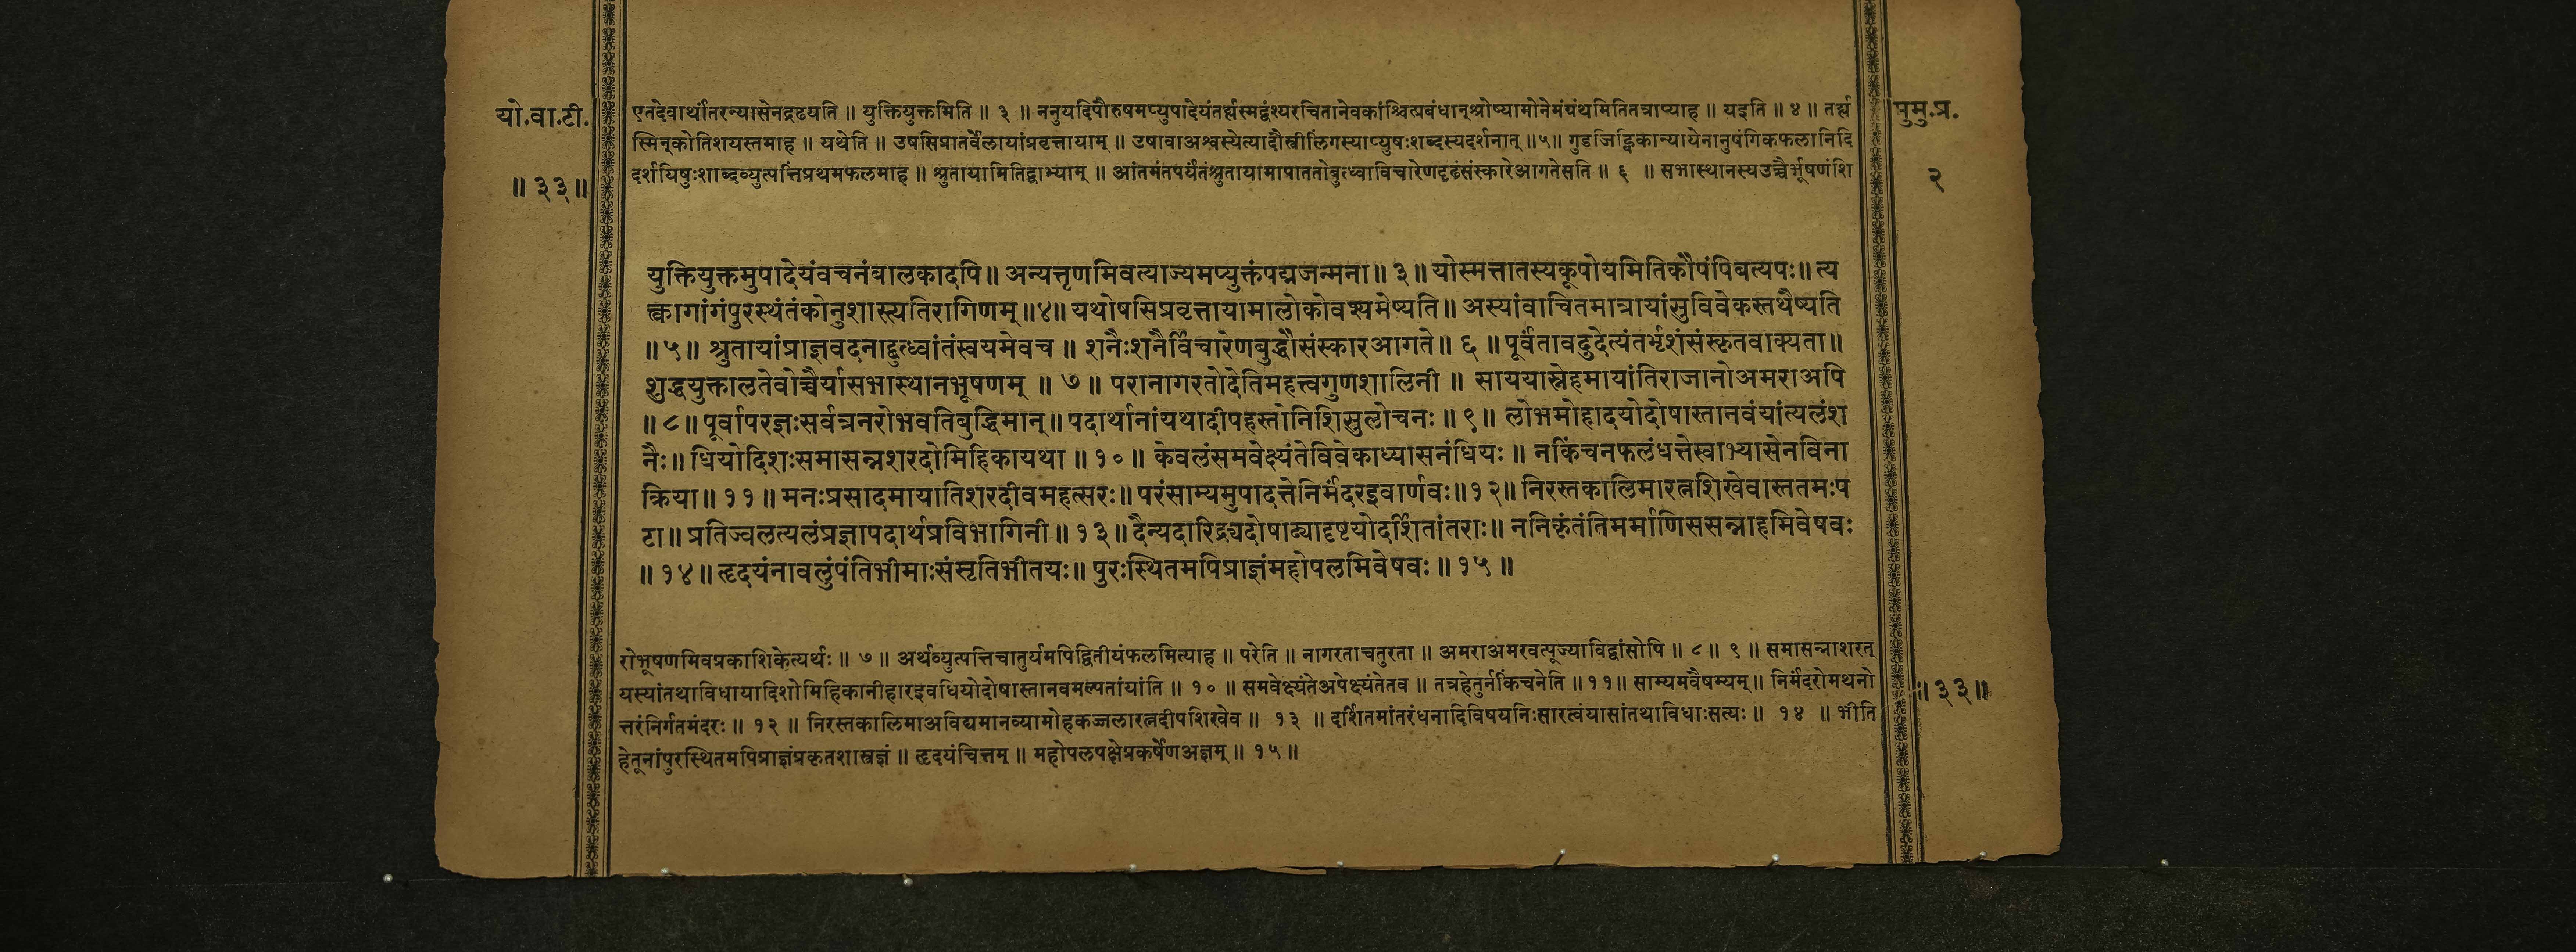 यो.वा.टी.
॥ ३३॥
एतदेवार्थांतरन्यासेनद्रढयति ॥ युक्तियुक्तमिति ॥ ३ ॥ ननुयदिपौरुषमप्युपादेयंतर्ह्यस्मद्वंश्यरचितानेवकांश्चित्प्रबंधान्श्रोष्यामोनेमंग्रंथमितितत्राप्याह ॥ यइति ॥ ४ ॥ तर्ह्य
स्मिन्कोतिशयस्तमाह ॥ यथेति ॥ उषसिप्रातर्वेलायांप्रवृत्तायाम् ॥ उषावाअश्वस्येत्यादौस्त्रीलिंगस्याप्युषःशब्दस्यदर्शनात् ॥५॥ गुडजिह्विकान्यायेनानुषंगिकफलानिदि
दर्शयिषुःशाब्दव्युत्पत्तिंप्रथमफलमाह ॥ श्रुतायामितिद्वाभ्याम् ॥ आंतमंतपर्यंतंश्रुतायामापाततोबुत्ध्वाविचारेणदृढंसंस्कारेआगतेसति ॥ ६ ॥ सभास्थानस्यउच्चैर्भूषणंशि
पुमु.प्र.
२
युक्तियुक्तमुपादेयंवचनंबालकादपि॥ अन्यत्तृणमिवत्याज्यमप्युक्तंपद्मजन्मना॥ ३॥ योस्मत्तातस्यकूपोयमितिकौपंपिबत्यपः॥ त्य
त्क्वागांगंपुरस्थंतंकोनुशास्त्यतिरागिणम्॥४॥ यथोषसिप्रवृत्तायामालोकोवश्यमेष्यति॥ अस्यांवाचितमात्रायांसुविवेकस्तथैष्यति
॥५॥ श्रुतायांप्राज्ञवदनाद्बुत्ध्वांतंस्वयमेवच ॥ शनैःशनैर्विचारेणबुद्धौसंस्कारआगते॥ ६ ॥ पूर्वंतावदुदेत्यंतर्भृशंसंस्कृतवाक्यता॥
शुद्धयुक्तालतेवोच्चैर्यासभास्थानभूषणम् ॥ ७ ॥ परानागरतोदेतिमहत्त्वगुणशालिनी ॥ साययास्नेहमायांतिराजानोअमराअपि
॥ ८॥ पूर्वापरज्ञःसर्वत्रनरोभवतिबुद्धिमान्॥ पदार्थानांयथादीपहस्तोनिशिसुलोचनः॥ ९॥ लोभमोहादयोदोषास्तानवंयांत्यलंश
नैः॥ धियोदिशःसमासन्नशरदोमिहिकायथा ॥ १० ॥ केवलंसमवेक्ष्यंतेविवेकाध्यासनंधियः ॥ नकिंचनफलंधत्तेस्वाभ्यासेनविना
क्रिया॥ ११ ॥ मनःप्रसादमायातिशरदीवमहत्सरः॥ परंसाम्यमुपादत्तेनिर्मंदरइवार्णवः॥१२॥ निरस्तकालिमारत्नशिखेवास्ततमःप
टा॥ प्रतिज्वलत्यलंप्रज्ञापदार्थप्रविभागिनी॥ १३॥ दैन्यदारिद्र्यदोषाढ्यादृष्टयोदर्शितांतराः॥ ननिकृंतंतिमर्माणिससन्नाहमिवेषवः
॥ १४॥ हृदयंनावलुंपंतिभीमाःसंसृतिभीतयः॥ पुरःस्थितमपिप्राज्ञंमहोपलमिवेषवः ॥ १५ ॥
रोभूषणमिवप्रकाशिकेत्यर्थः ॥ ७ ॥ अर्थव्युत्पत्तिचातुर्यमपिद्वितीयंफलमित्याह ॥ परेति ॥ नागरताचतुरता ॥ अमराअमरवत्पूज्याविद्वांसोपि ॥ ८ ॥ ९ ॥ समासन्नाशरत्
यस्यांतथाविधायादिशोमिहिकानीहारइवधियोदोषास्तानवमल्पतांयांति ॥ १० ॥ समवेक्ष्यंतेअपेक्ष्यंतेतव ॥ तत्रहेतुर्नकिंचनेति ॥११॥ साम्यमवैषम्यम्॥ निर्मंदरोमथनो
त्तरंनिर्गतमंदरः॥ १२ ॥ निरस्तकालिमाअविद्यमानव्यामोहकज्जलारत्नदीपशिखेव ॥ १३ ॥ दर्शितमांतरंधनादिविषयनिःसारत्वंयासांतथाविधाःसत्यः॥ १४ ॥ भीति
हेतूनांपुरस्थितमपिप्राज्ञंप्रकृतशास्त्रज्ञं ॥ हृदयंचित्तम् ॥ महोपलपक्षेप्रकर्षेणअज्ञम् ॥ १५॥
॥३३॥